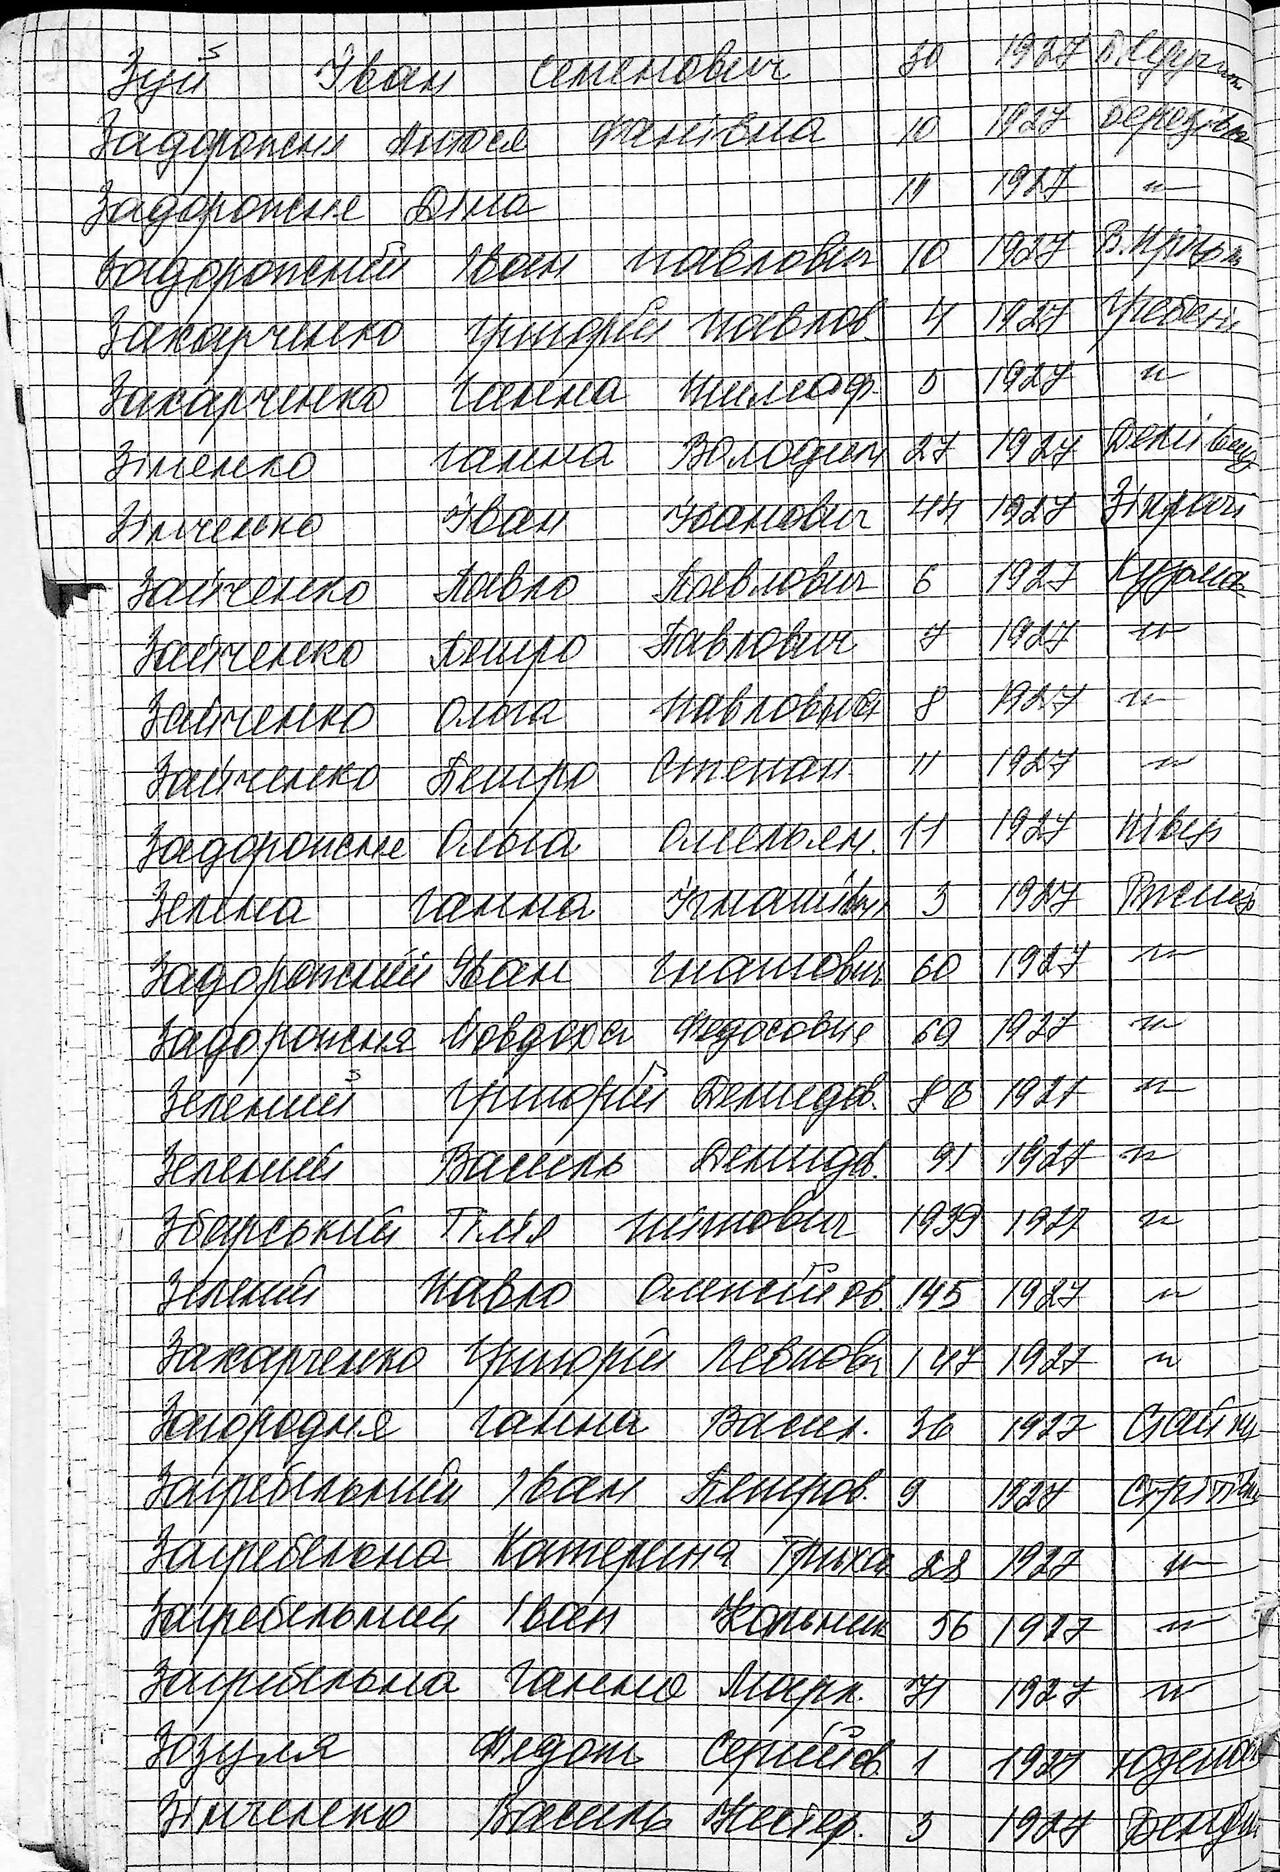 Зуй Іван Семенович 30 1927
Задорожня Антося 10 1927 Березівк
Задорожнє Діна 11 1927 -"-
Задорожній Іван Павлович 10 1927
Захарченко Григорій Павлов. 4 1927 Гребені
Захарченко Ганна 5 1927 -"-
Ганна Володим 27 1927
Зінченько Іван Іванович 44 1927
Зайченко Павло Павлович 6 1927
Зайченко Петро Павлович 7 1927 -"-
Зайченко Ольга Павловна 8 1927 -"-
Зайченко Петро Степан. 11 1927 -"-
Задорожнє Ольга Омельян. 11 1927
Зелена Ганна Ігнатівн 3 1927
Задорожній Іван Гнатович 60 1927 -"-
Задорожня Явдоха Федосовне 69 1927 -"-
Зелений Григорій Демидов. 86 1927 -"-
Зелений Василь Демидов. 91 1927 -"-
Збарський 1939 1927 -"-
Зелений Павло Олексійов. 145 1927 -"-
Захарченко Григорій Левков 147 1927 -"-
Загородня Ганна Васил. 36 1927 Стайки
Загребельний Іван Петров. 9 1927 Стрітівк
Загребельна Катерина 28 1927 -"-
Загребельний Іван 56 1927 -"-
Загребельна Ганна Марк. 71 1927 -"-
Зозуля Федот Сергійов 1 1927
Зінченко Василь Нестер. 3 1927